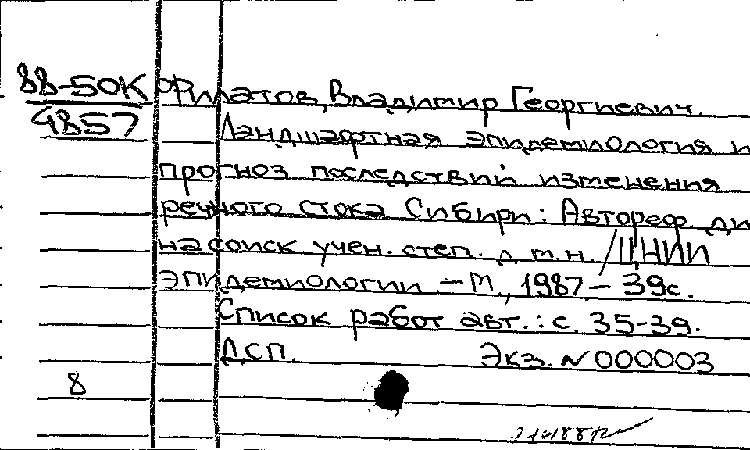 88-50К Филатов, Владимир Георгиевич.
4857 Ландшафтная эпидемиология и
прогноз последствий изменения
речного стока Сибири: Автореф. ди
на соиск. учен. степ. д. м. н. / ЦНИИ
эпидемиологии – М., 1987 – 39с.
Список работ авт.: с. 35-39.
ДСП. Экз. N 000003
8